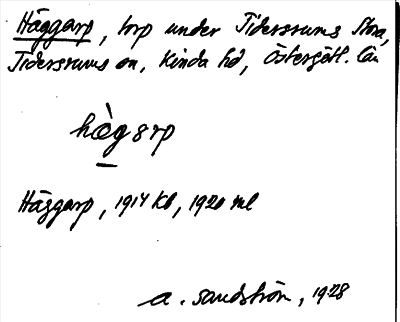 Häggarp, torp under Tidersrums Stora,
Tidersrums sn, Kinda hd, Östergötl. län
hæ̀garp
Häggarp, 1914 kb, 1920 ml
A. Sandström, 1928